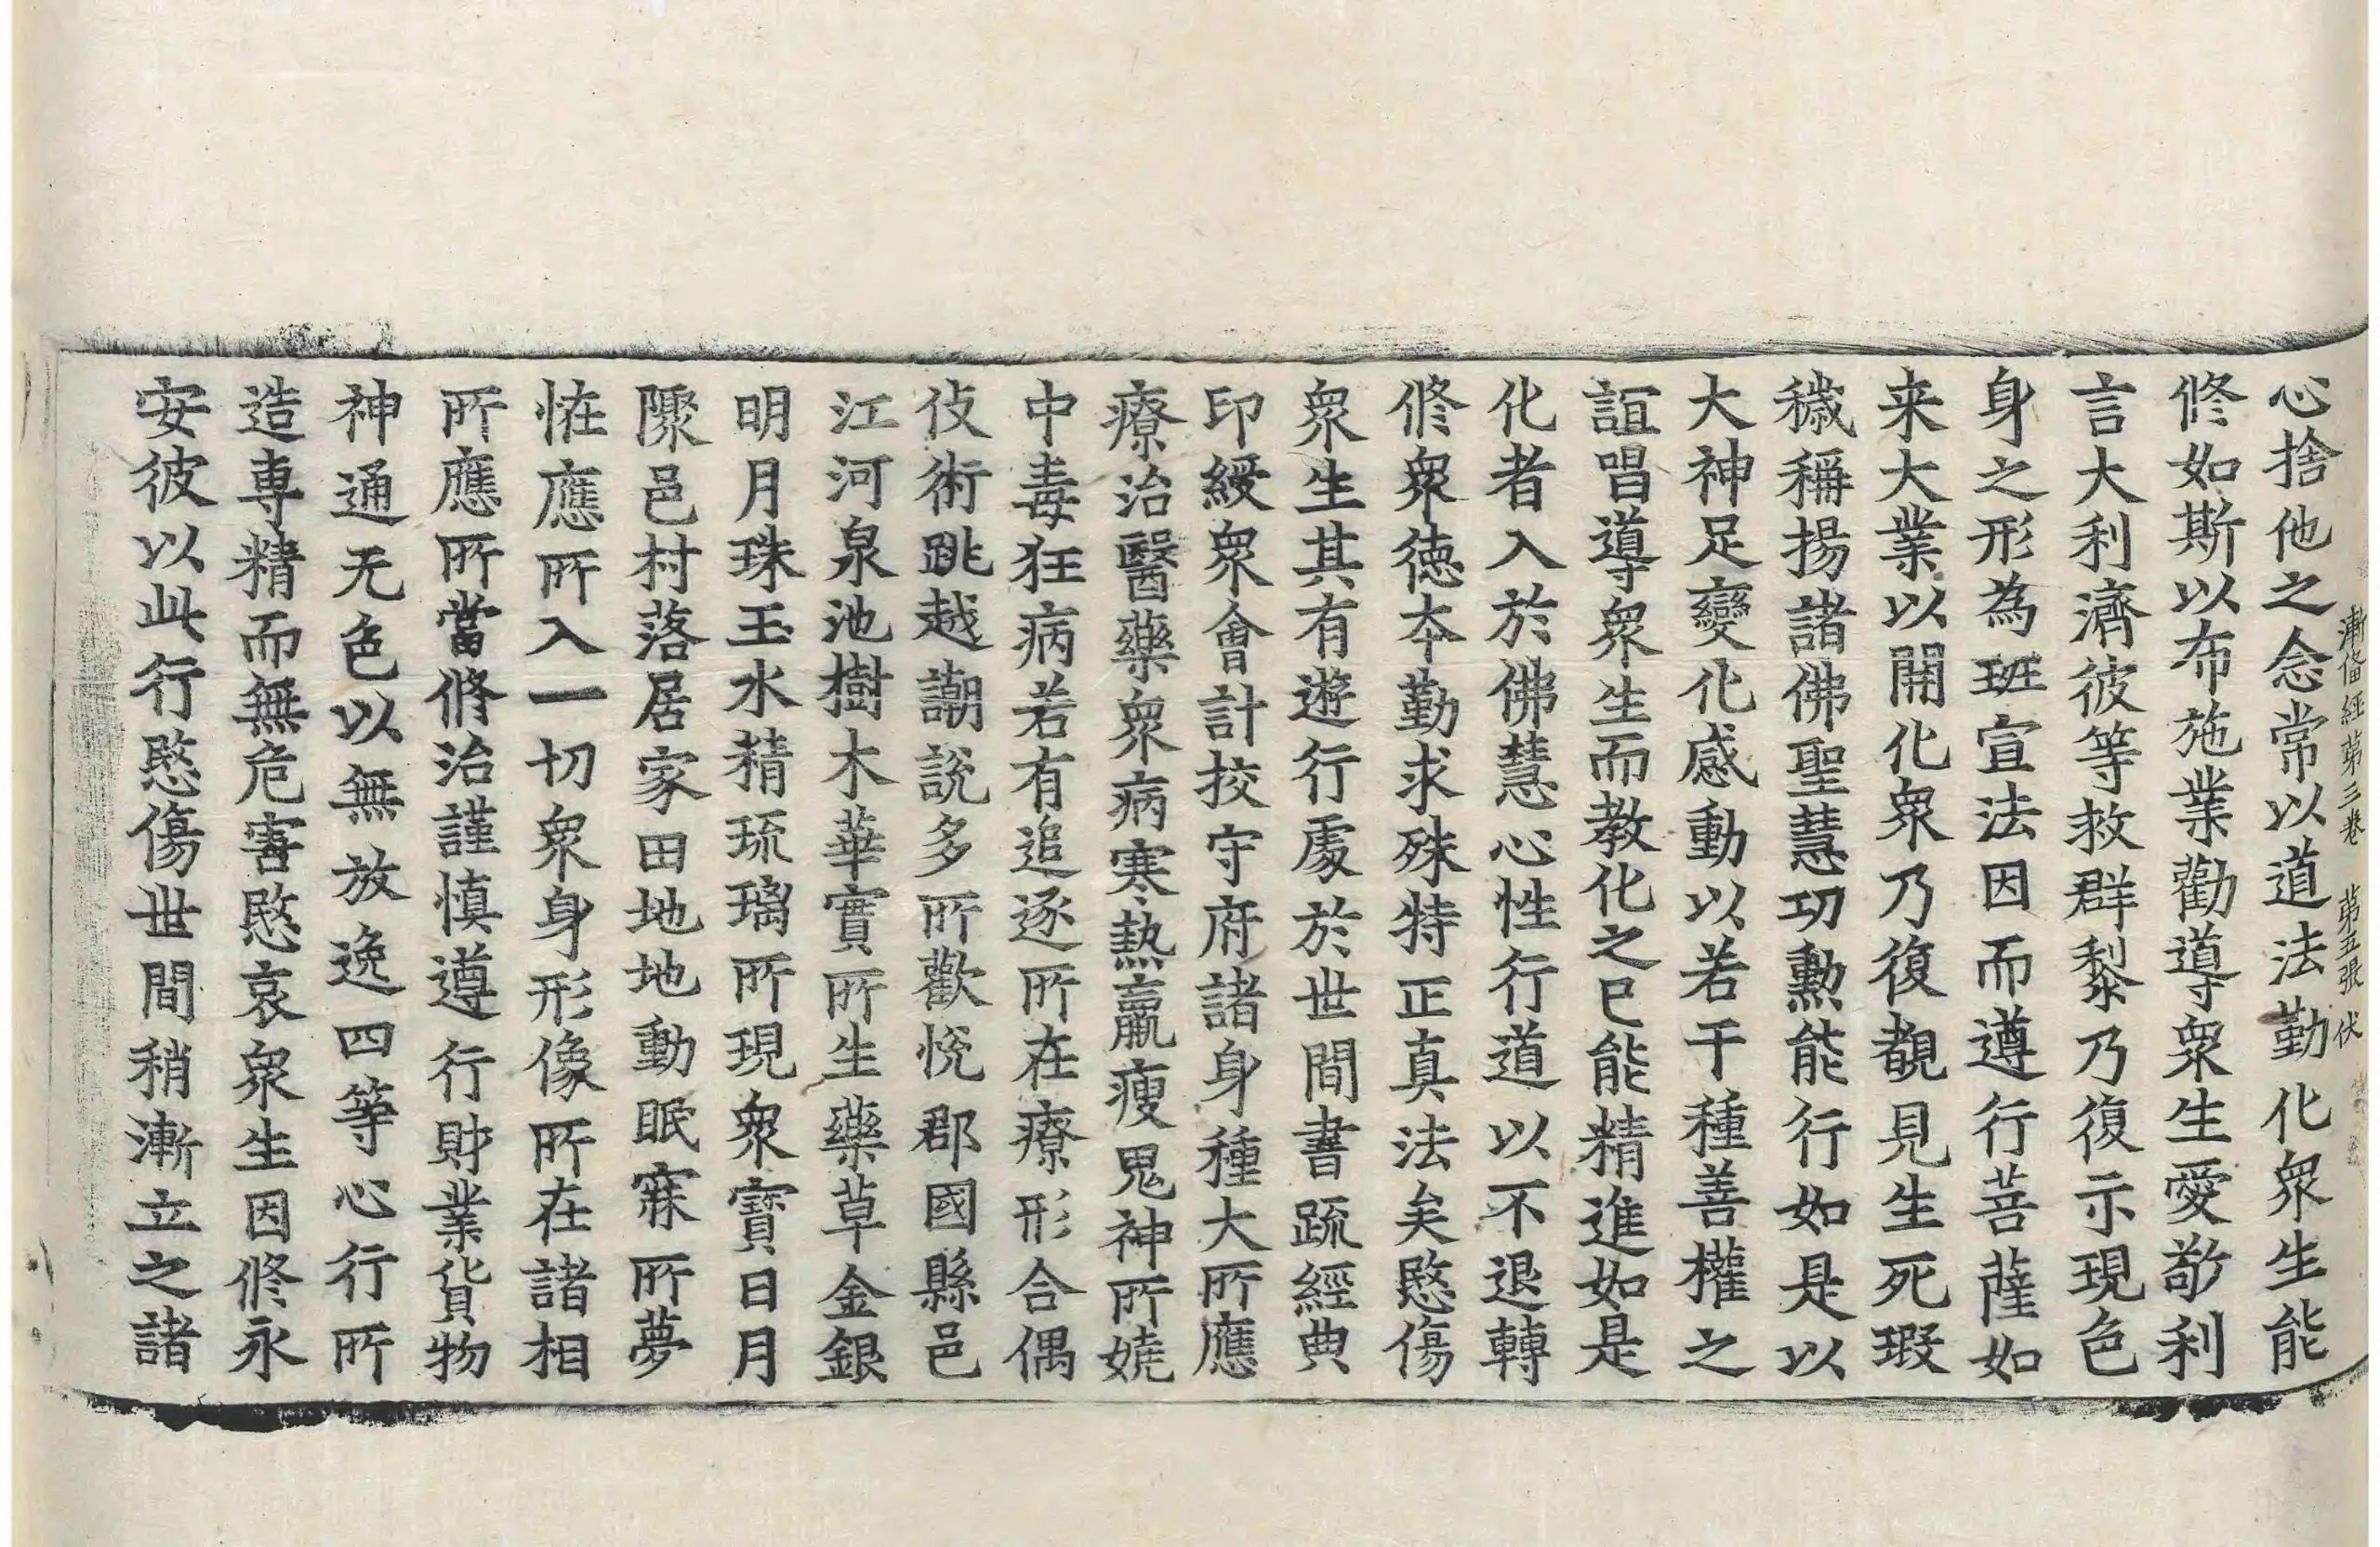 漸俻經第三卷　第五張　伏
心捨他之念常以道法勤化衆生能
修如斯以布施業勸導衆生愛敬利
言大利濟彼等救群黎乃復示現色
身之形為班宣法因而遵行菩薩如
来大業以開化衆乃復覩見生死瑕
穢稱揚諸佛聖慧功勲能行如是以
大神足變化感動以若干種善權之
誼唱導衆生而教化之已能精進如是
化者入於佛慧心性行道以不退轉
修衆徳夲勤求殊特正真法矣愍傷
衆生其有遊行處於世間書䟽經典
印綬衆會計挍守府諸身種大所應
療治醫藥衆病寒熱羸瘦鬼神所嬈
中毒狂病若有追逐所在療形合偶
伎術跳越謿説多所歡悅郡國縣邑
江河泉池樹木華實所生藥草金銀
明月珠玉水精琉璃所現衆寶日月
隟邑村落居家田地地動眠寐所夢
恠應所入一切衆身形像所在諸相
所應所當脩治謹慎遵行財業貨物
神通无色以無放逸四等心行所
造専精而無危害愍哀衆生因修永
安彼以此行愍傷世間稍漸立之諸